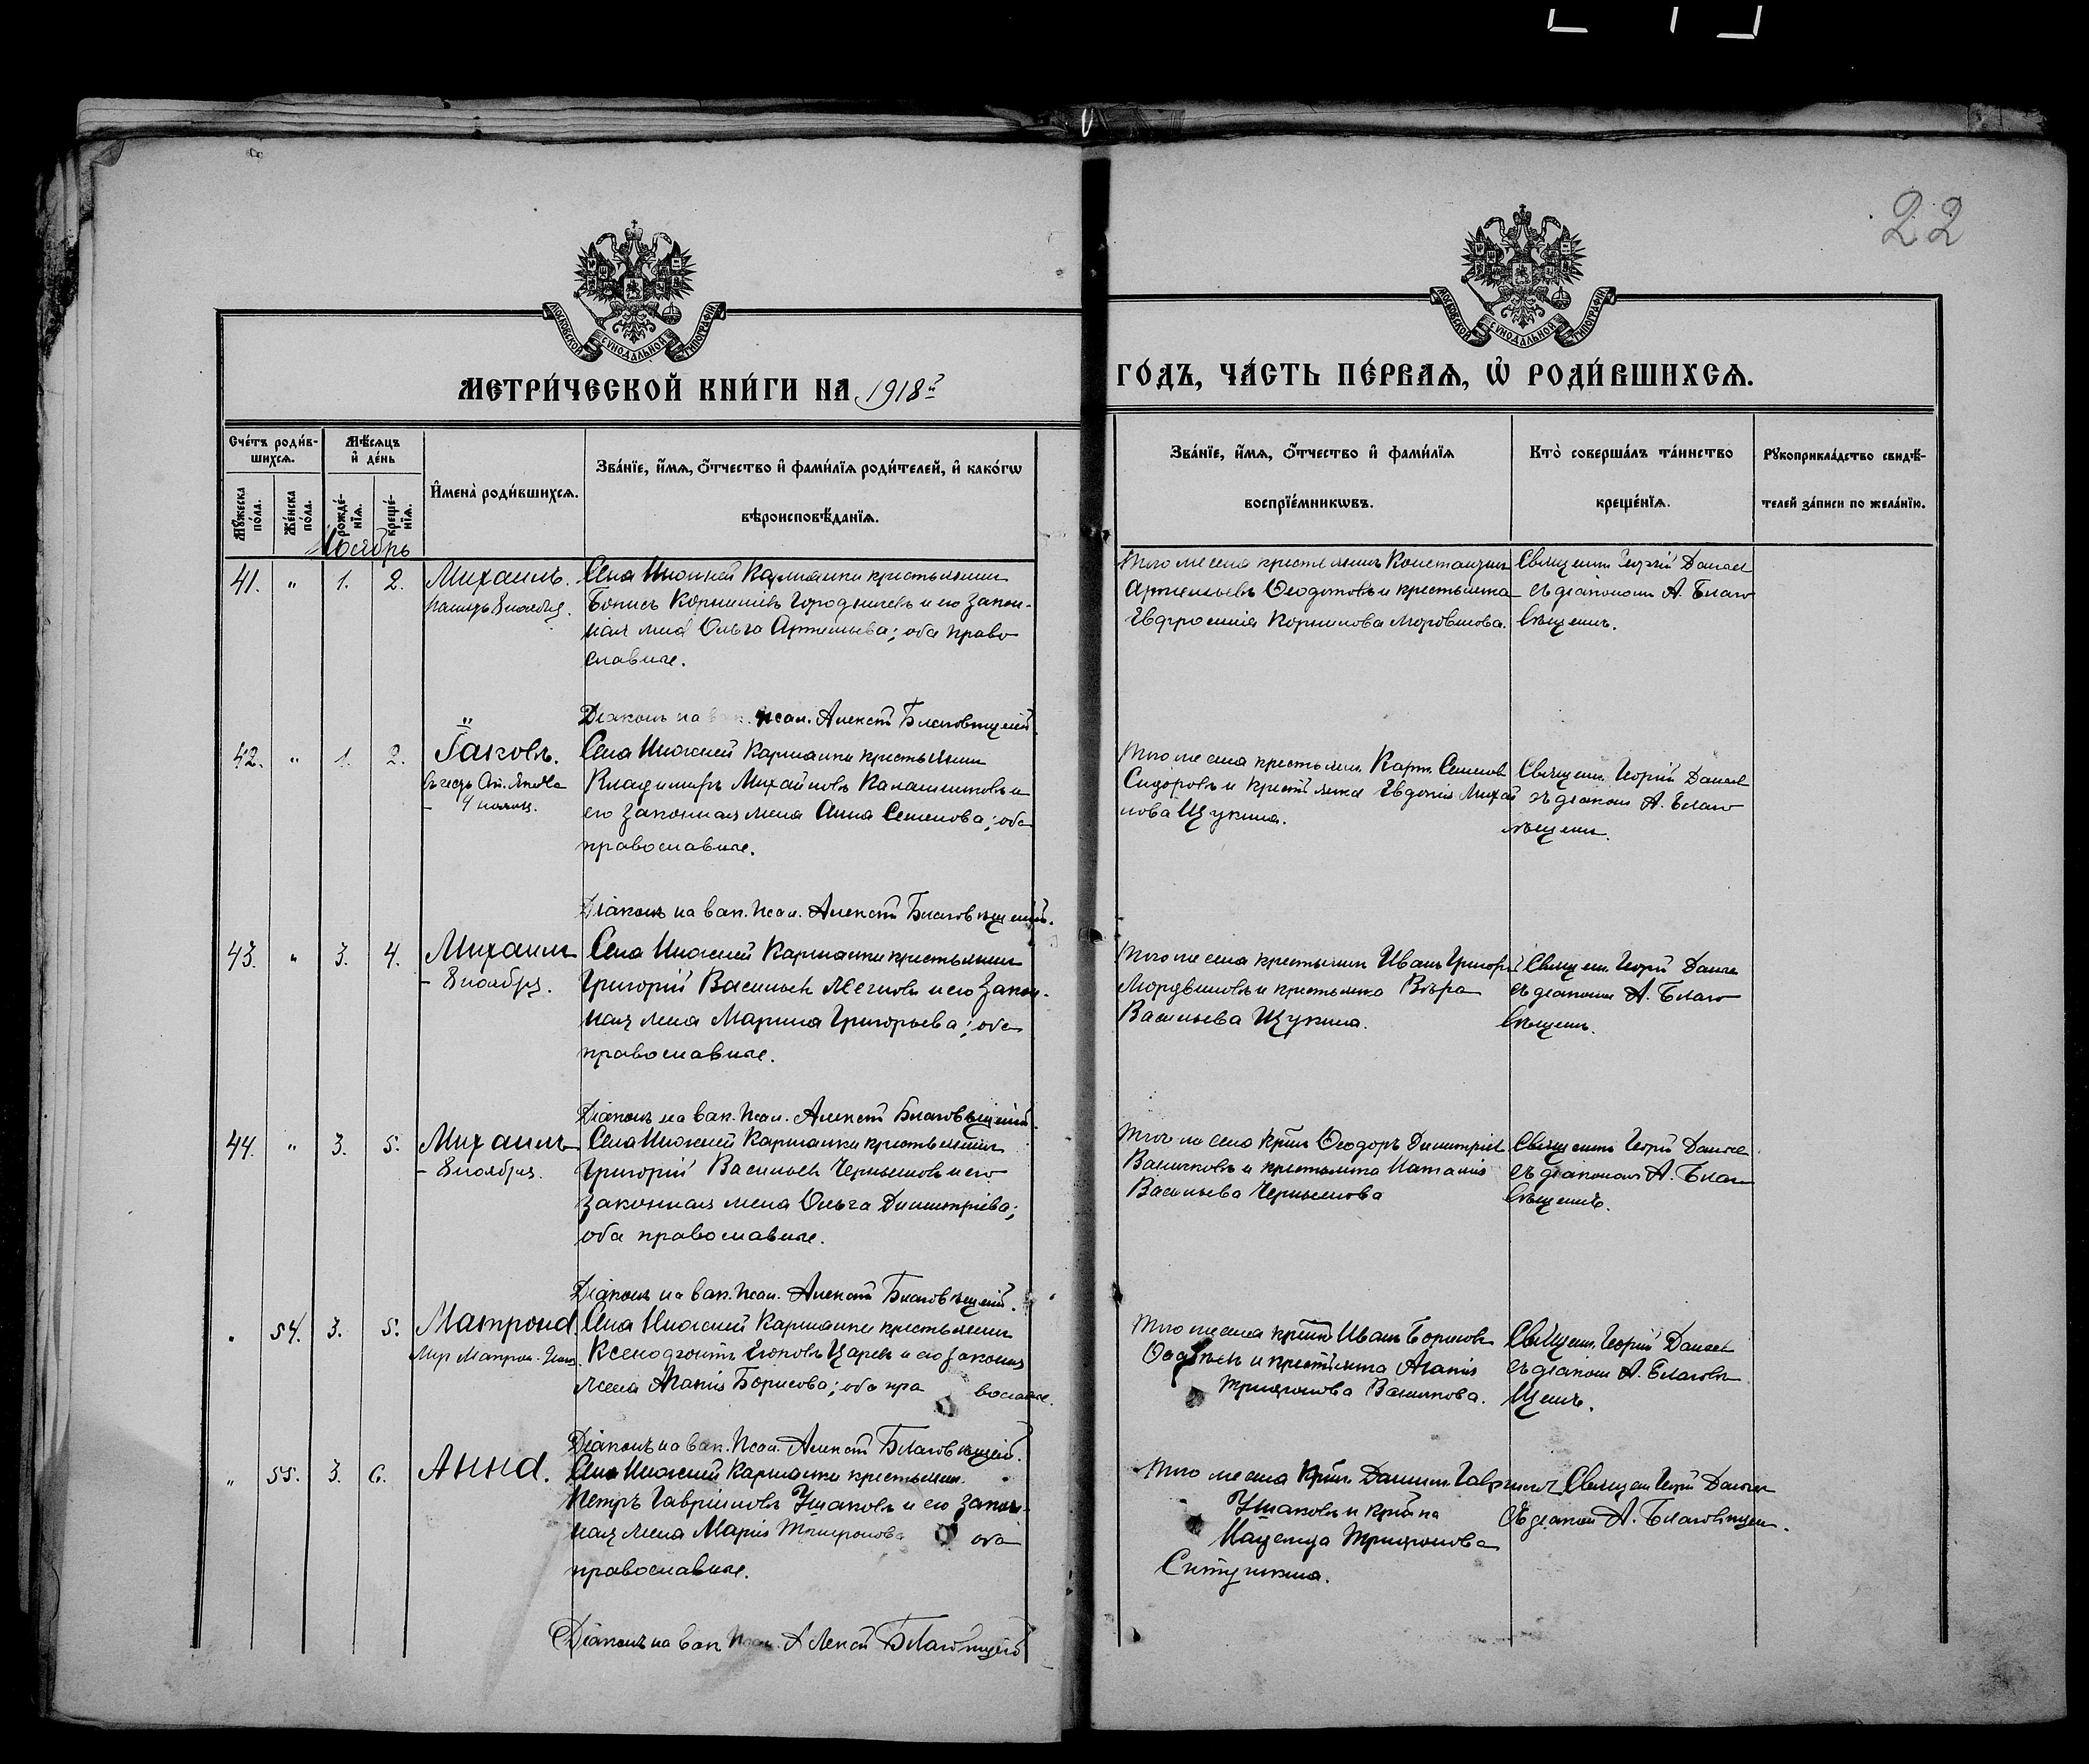 22
МОСКОВСКОЙ СѴНОДАЛЬНОЙ ТИПОГРАФІИ
МОСКОВСКОЙ СѴНОДАЛЬНОЙ ТИПОГРАФІИ
МЕТРИ́ЧЕСКОЙ КНИ́ГИ НА 1918й
ГО́ДЪ, ЧА́СТЬ ПЕ́РВАѦ, Ѡ҆ РОДИ́ВШИХСѦ.
Сче́тъ роди́в-
шихсѧ.
Мꙋ́жеска по́ла.
Же́нска по́ла.
Мѣ́сѧцъ и҆ де́нь
рожде́-нїѧ.
креще́-нїѧ.
И҆мена̀ роди́вшихсѧ.
Зва́нїе, и҆́мѧ, ѻ҆́тчество и҆ фами́лїѧ роди́телей, и҆ како́гѡ
вѣроисповѣ́данїѧ.
Зва́нїе, и҆́мѧ, ѻ҆́тчество и҆ фами́лїѧ
воспрїе́мникѡвъ.
Кто̀ соверша́лъ та́инство
креще́нїѧ.
Рꙋкоприкла́дство свидѣ́-
телей за́писи по жела́нїю.
Ноябрь
41. " 1. 2. Михаилъ.
8 ноября.
Села Нижней Кармалки крестьянинъ
Борисъ и его закон-
ная жена Ольга Артемьева; оба право
славные.
Діаконъ на вак. псал. Алексѣй Благовѣщенскій.
Того же села крестьянинъ Константинъ
Артемьевъ Ѳеодотовъ и крестьянка
Евфросинія Корнилова Мордвинова.
Священ. Георгій
съ діакономъ А. Благо
вѣщен.
42. " 1. 2. Іаковъ.
4 нояб.
Села Нижней Кармалки крестьянинъ
Владимиръ Михайловъ Калашниковъ и
его законная жена Анна Семенова; оба
православные.
Діаконъ на вак. псал. Алексѣй Благовѣщенскій.
Того же села крестьян. Карп. Семенов
Сидоровъ и крест янка Евдокія Михай
лова Щукина.
Священ. Георгій
съ діакон А. Благо
вѣщен.
43. " 3. 4. Михаилъ
- 8 ноября.
Села Нижней Кармалки крестьянинъ
Григорій Васильев и его закон-
ная жена Марина Григорьева; оба
православные.
Діаконъ на вак. псал. Алексѣй Благовѣщенскій.
Того же села крестьянин Иванъ Григорь
Мордвиновъ и крестьянка Вѣра
Васильева Щукина.
Священ. Георгій
съ діакономъ А. Благо
вѣщен.
44. " 3. 5. Михаилъ
- 8 ноября.
Села Нижней Кармалки крестьянинъ
Григорій Васильев Чернышовъ и его
законная жена Ольга Димитріева;
оба православные.
Діаконъ на вак. псал. Алексѣй Благовѣщенскій.
Того же села Ѳеодоръ Димитріев
и крестьянка Наталія
Васильева Чернышова
Священ. Георгій
съ діакономъ А. Благо
вѣщен.
" 54. 3. 5. Матрона.
Села Нижней Кармалки крестьянинъ
Ксенофонтъ Царевъ и его законная
жена Агапія Борисова; оба пра вославные.
Діаконъ на вак. псал. Алексѣй Благовѣщенскій.
Того же села Иванъ Борисовъ
и крестьянка Агапія
Трифонова
Священ. Георгій
съ діакон А. Благовѣ
щен.
" 55. 3. 6. Анна.
Села Нижней Кармалки крестьянин.
Петръ Гавріиловъ Ушаковъ и его закон-
ная жена Марія Трифонова оба
православные.
Діаконъ на вак. псал. Алексѣй Благовѣщенскій
Того же села Даніил. Гавріилов
Ушаковъ и
Надежда Трифонова
Священ. Георгій
съ діакон А. Благовѣщен.